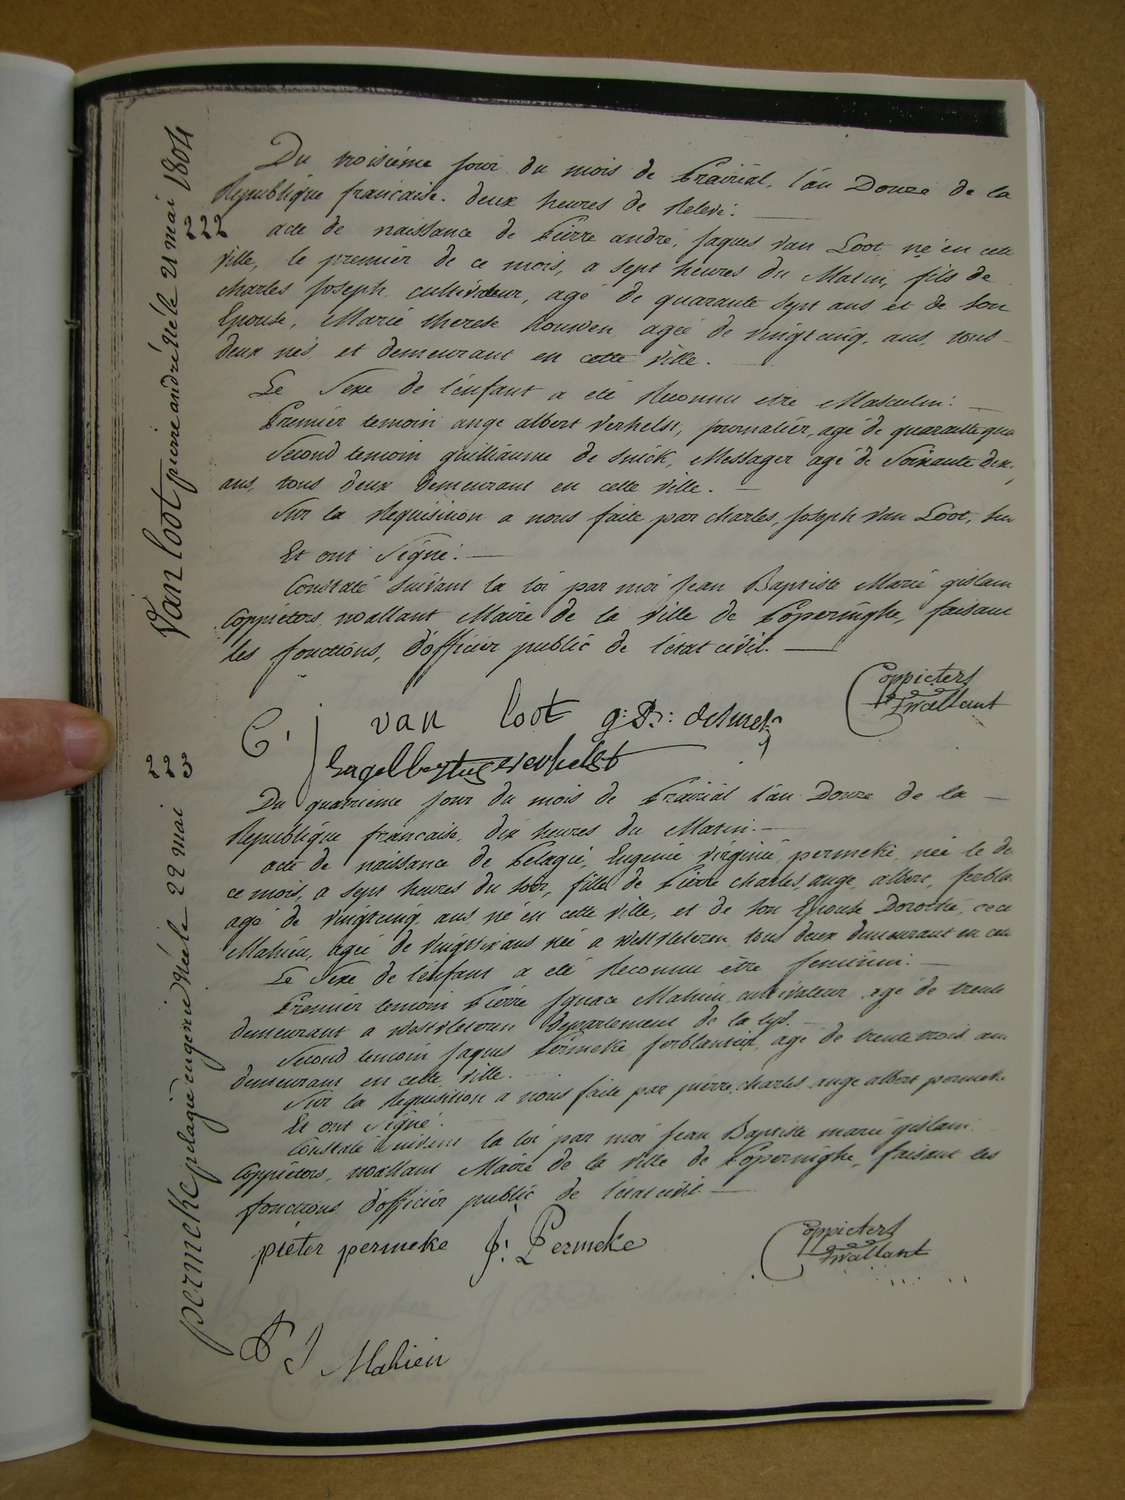 Van Loot pierre andré Né le 21 mai 1804
Du troisiéme jour du mois de Prairial, l'an Douze de la
Republique française. deux heures de Relevé.
222 acte de naissance de Pierre andré, jaques Van Loot, né en cette
ville, le premier de ce mois, a sept heures du Matin, fils de
charles Joseph cultivateur, agé de quarante sept ans et de son
Epouse, Marie therese Rouwen agée de vingtcinq ans, tous
deux nés et demeurant en cette ville.
Le Sexe de l'enfant a été Reconnu etre Masculin:
Premier temoin ange albert Verhelst, journalier, agé de quarante
Second temoin guilliaume de snick, Messager agé de Soixante deux
ans, tous deux demeurant en cette ville.
Sur la Requisition a nous faite par charles, joseph Van Loot,
Et ont Signé:
Constaté suivant la loi par moi jean Baptiste Marie gislain
Coppieters wallant Maire de la ville de Poperinghe, faisant
les fonctions, d'officier public de l'etat civil.
Coppieters
Twallant
C. j van loot g: D:
Engelbertus verhelst
permeke pelagie eugenie Née le 22 mai
223
Du quatrieme jour du mois de Prairial l'an Douze de la
Republique française, dix heures du Matin.
acte de naissance de Pelagie, Eugenie virginie permeke née le de
ce mois, a sept heures du soir, fille de Pierre charles, ange, albert, ferbla
agé de vingtcinq ans né en cette ville, et de son Epouse Dorothé,
Mahieu, agée de vingtsix ans née a westvleteren, tous deux demeurant en
Le Sexe de l'enfant a été Reconnu être feminin:
Premier temoin Pierre Ignace Mahieu cultivateur agé de trente
demeurant a westvleteren departement de la Lys.
Second temoin jaques Permeke ferblantier, agé de trente trois ans
demeurant en cette ville.
Sur la Requisition a nous faite par pierre, charles ange albert permeke
Et ont Signé:
Constaté suivant la loi par moi jean Baptiste marie gislain
Coppieters, wallant Maire de la ville de Poperinghe, faisant les
fonctions d'officier public de l'etat civil.
pieter permeke J: Permeke
Coppieters
Twallant
P J Mahieu